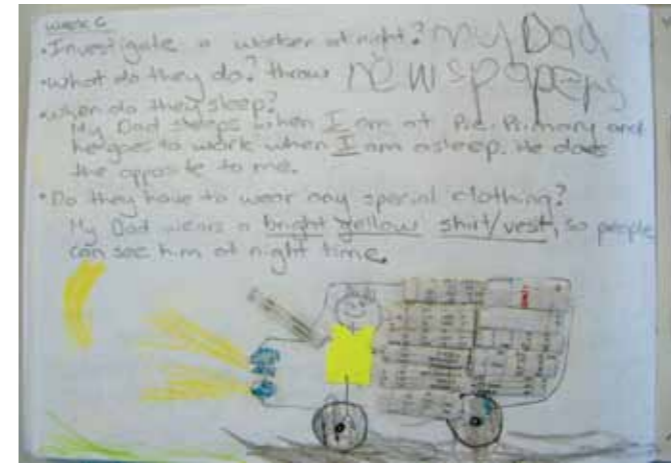 week 6
• Investigate a worker at night? my Dad
• what do they do? throw newspapers
• when do they sleep?
My Dad sleeps when I am at Pre-Primary and
he goes to work when I am asleep. He does
the opposite to me.
• Do they have to wear any special clothing?
My Dad wears a bright yellow shirt/vest, so people
can see him at night time.